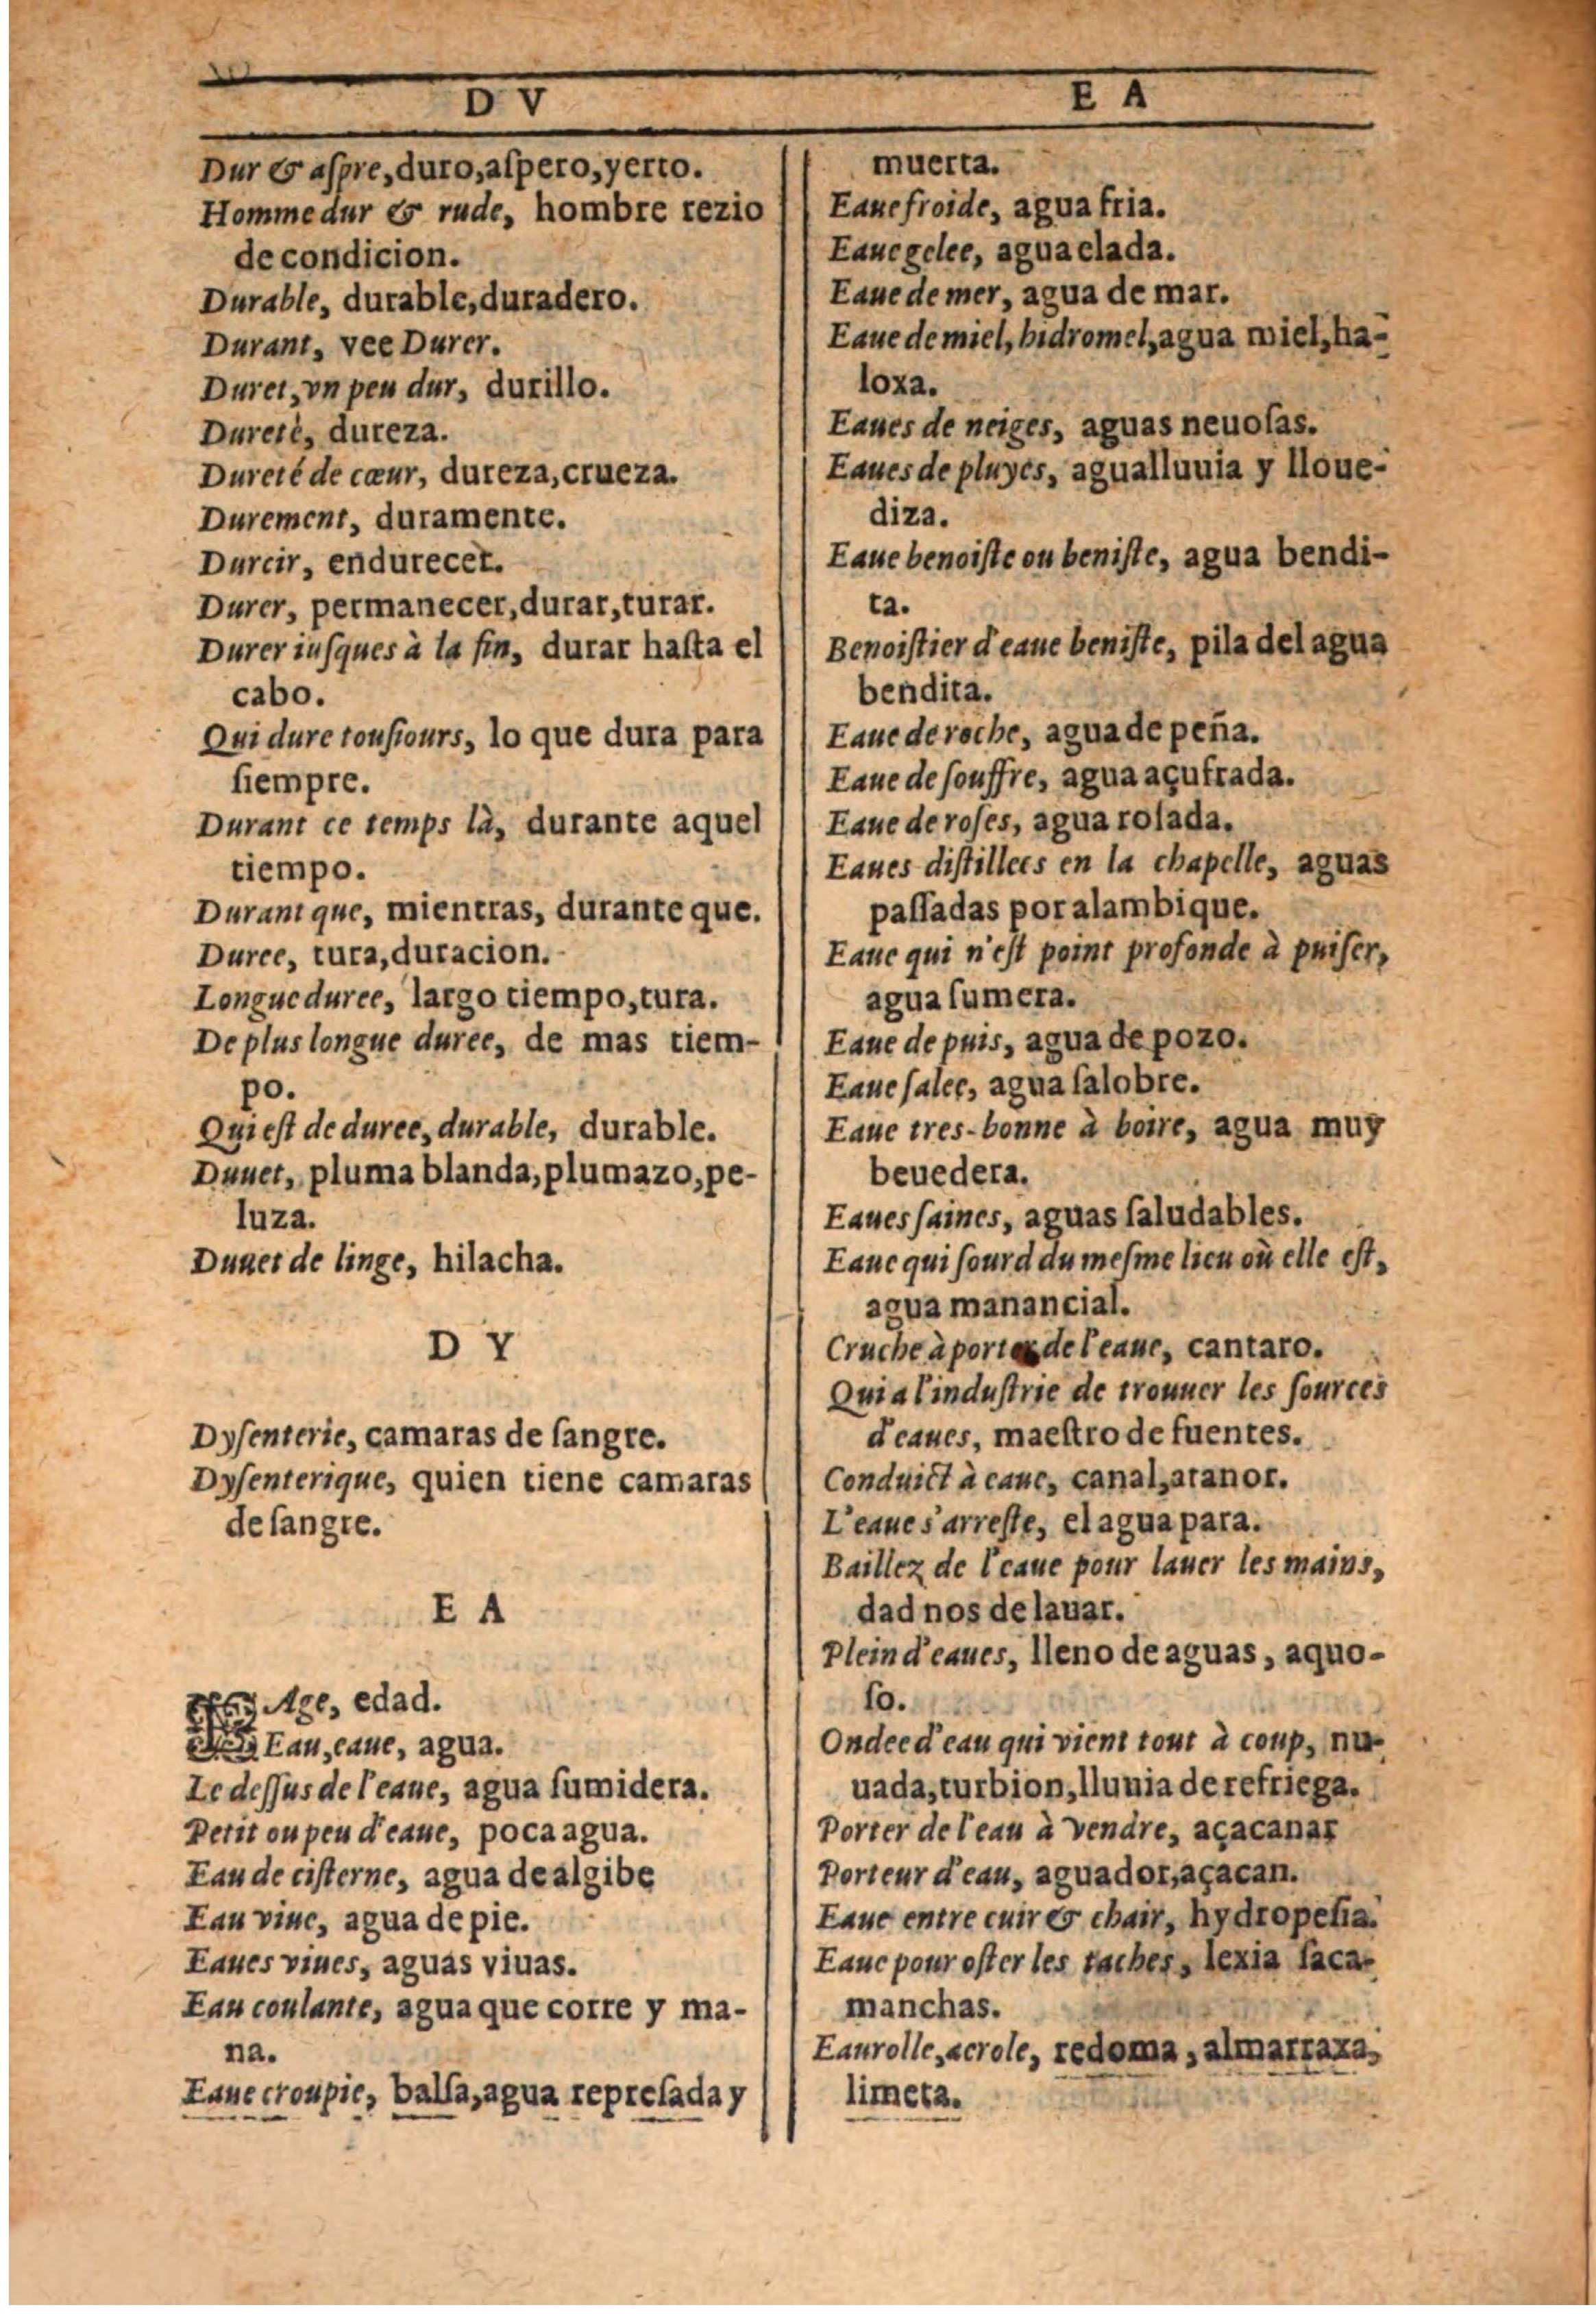 D V
Dur & aſpre, duro, aſpero, yerto.
Homme dur & rude, hombre rezio
de condicion.
Durable, durable, duradero.
Durant, vee Durer.
Duret, vn peu dur, durillo.
Dureté, dureza.
Dureté de cœur, dureza, crueza.
Durement, duramente.
Durcir, endurecer.
Durer, permanecer, durar, turar.
Durer iuſques à la fin, durar haſta el
cabo.
Qui dure touſiours, lo que dura para
ſiempre.
Durant ce temps là, durante aquel
tiempo.
Durant que, mientras, durante que.
Duree, tura, duracion.
Longue duree, largo tiempo, tura.
De plus longue duree, de mas tiem-
po.
Qui eſt de duree, durable, durable.
Duuet, pluma blanda, plumazo, pe-
luza.
Duuet de linge, hilacha.
D Y
Dyſenterie, camaras de ſangre.
Dyſenterique, quien tiene camaras
de ſangre.
E A
Age, edad.
Eau, eaue, agua.
Le deſſus de l'eaue, agua ſumidera.
Petit ou peu d'eaue, poca agua.
Eau de ciſterne, agua de algibe
Eau viue, agua de pie.
Eaues viues, aguas viuas.
Eau coulante, agua que corre y ma-
na.
Eaue croupie, balſa, agua repreſada y
E A
muerta.
Eaue froide, agua fria.
Eaue gelee, agua elada.
Eaue de mer, agua de mar.
Eaue de miel, hidromel, agua miel, ha-
loxa.
Eaues de neiges, aguas neuoſas.
Eaues de pluyes, agualluuia y lloue-
diza.
Eaue benoiſte ou beniſte, agua bendi-
ta.
Benoiſtier d'eaue beniſte, pila del agua
bendita.
Eaue de roche, agua de peña.
Eaue de ſouffre, agua açufrada.
Eaue de roſes, agua roſada.
Eaues diſtillees en la chapelle, aguas
paſſadas por alambique.
Eaue qui n'eſt point profonde à puiſer,
agua ſumera.
Eaue de puis, agua de pozo.
Eaue ſalee, agua ſalobre.
Eaue tres-bonne à boire, agua muy
beuedera.
Eaues ſaines, aguas ſaludables.
Eaue qui ſourd du meſme lieu où elle eſt,
agua manancial.
Cruche à porter de l'eaue, cantaro.
Qui a l'induſtrie de trouuer les ſources
d'eaues, maeſtro de fuentes.
Conduict à eaue, canal, atanor.
L'eaue s'arreſte, el agua para.
Baillez de l'eaue pour lauer les mains,
dad nos de lauar.
Plein d'eaues, lleno de aguas, aquo-
ſo.
Ondee d'eau qui vient tout à coup, nu-
uada, turbion, lluuia de refriega.
Porter de l'eau à vendre, açacanar
Porteur d'eau, aguador, açacan.
Eaue entre cuir & chair, hydropeſia.
Eaue pour oſter les taches, lexia ſaca-
manchas.
Eaurolle, acrole, redoma, almarraxa,
limeta.